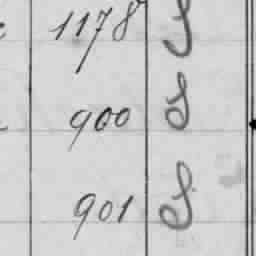 1178 S
900 S
901 S